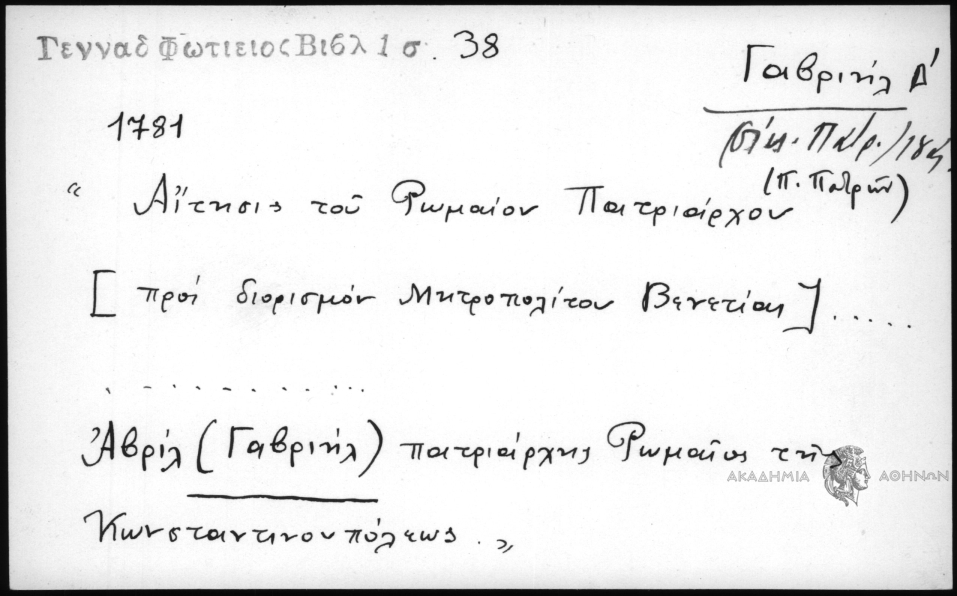 Γενναδ Φωτιειος Βιβλ 1 σ. 38
Γαβριήλ Δ'
(Π. Πατρῶν)
1781
“ Αἴτησις τοῦ Ρωμαίου Πατριάρχου
[ πρός διορισμόν Μητροπολίτου Βενετίας] .....
..........
Ἀβρίλ (Γαβριήλ) πατριάρχης Ρωμαῖος τῆς
Κωνσταντινουπόλεως . „
ΑΚΑΔΗΜΙΑ ΑΘΗΝΩΝ